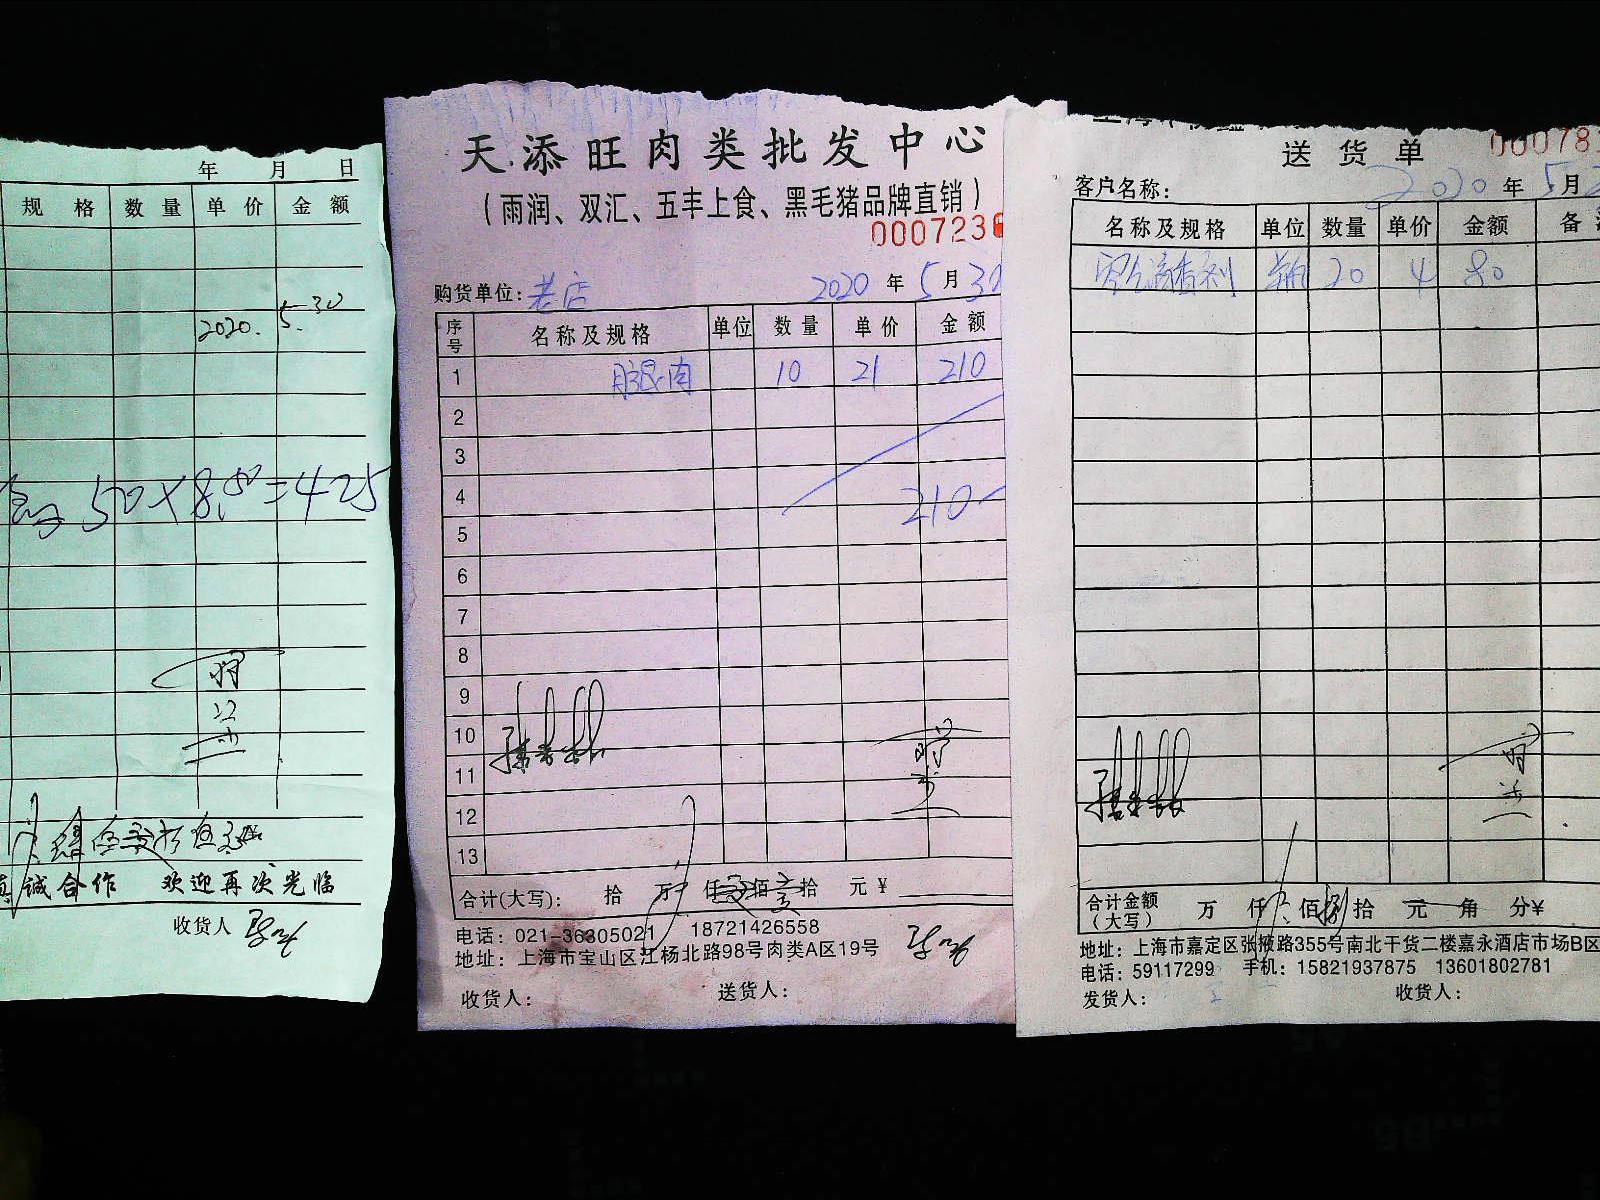 年 月 日
规 格 数 量 单 价 金 额
2020. 5. 30
50×8.50=425
诚合作 欢迎再次光临
收货人
天添旺肉类批发中心
(雨润、双汇、五丰上食、黑毛猪品牌直销)
000723
购货单位: 老店 2020 年 5 月 30
序号 名称及规格 单位 数量 单价 金额
1 腿肉 10 21 210
2
3
4 210
5
6
7
8
9
10
11
12
13
合计(大写): 拾 万 仟 佰 拾 元 ¥
电话: 021-36305021 18721426558
地址: 上海市宝山区江杨北路98号肉类A区19号
收货人: 送货人:
送 货 单
00078
客户名称: 2020 年 5月
名称及规格 单位 数量 单价 金额 备
20 4 80
合计金额(大写) 万 仟 佰 捌 拾 元 角 分¥
地址: 上海市嘉定区张掖路355号南北干货二楼嘉永酒店市场B区
电话: 59117299 手机: 15821937875 13601802781
发货人: 收货人: